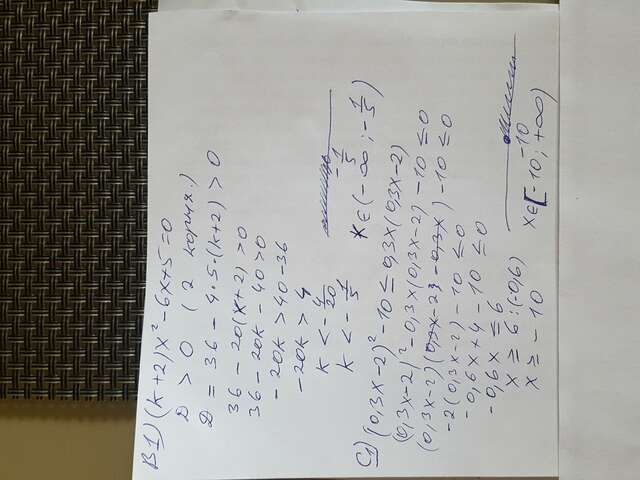 B1) (k+2)x²-6x+5=0
D > 0 (2 корня.)
D = 36 - 4·5·(k+2) > 0
36 - 20(k+2) > 0
36 - 20k - 40 > 0
-20k > 40-36
-20k > 4
k < -4/20
k < -1/5
-1/5
k ∈ (-∞; -1/5)
C1) (0,3x-2)² - 10 ≤ 0,3x(0,3x-2)
(0,3x-2)² - 0,3x(0,3x-2) - 10 ≤ 0
(0,3x-2)(0,3x-2-0,3x) - 10 ≤ 0
-2(0,3x-2) - 10 ≤ 0
-0,6x + 4 - 10 ≤ 0
-0,6x ≤ 6
x ≥ 6:(-0,6)
x ≥ -10
-10
x ∈ [-10; +∞)